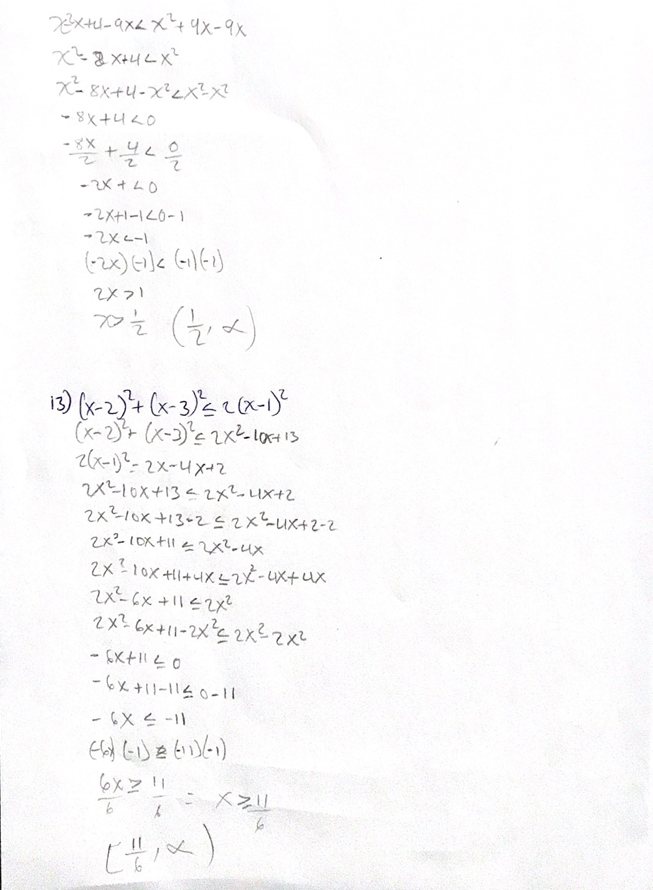 x²x+4-9x<x²+9x-9x
x²-8x+4<x²
x²-8x+4-x²<x²-x²
-8x+4<0
-8x/2 + 4/2 < 0/2
-2x+<0
-2x+1-1<0-1
-2x<-1
(-2x)(-1)<(-1)(-1)
2x>1
x>1/2 (1/2, ∝)
13) (x-2)²+(x-3)²≤2(x-1)²
(x-2)²+(x-3)²≤2x²-10x+13
2(x-1)²=2x-4x+2
2x²-10x+13≤2x²-4x+2
2x²-10x+13-2≤2x²-4x+2-2
2x²-10x+11≤2x²-4x
2x²-10x+11+4x≤2x²-4x+4x
2x²-6x+11≤2x²
2x²-6x+11-2x²≤2x²-2x²
-6x+11≤0
-6x+11-11≤0-11
-6x≤-11
(-6x)(-1)≥(-11)(-1)
6x/6≥11/6 = x≥11/6
[11/6, ∝)